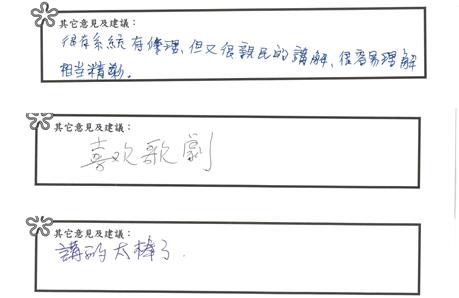 其它意見及建議：
很有系統有條理、但又很親民的講解、很容易理解
相當精彩。
其它意見及建議：
喜欢歌劇
其它意見及建議：
講的太棒了.